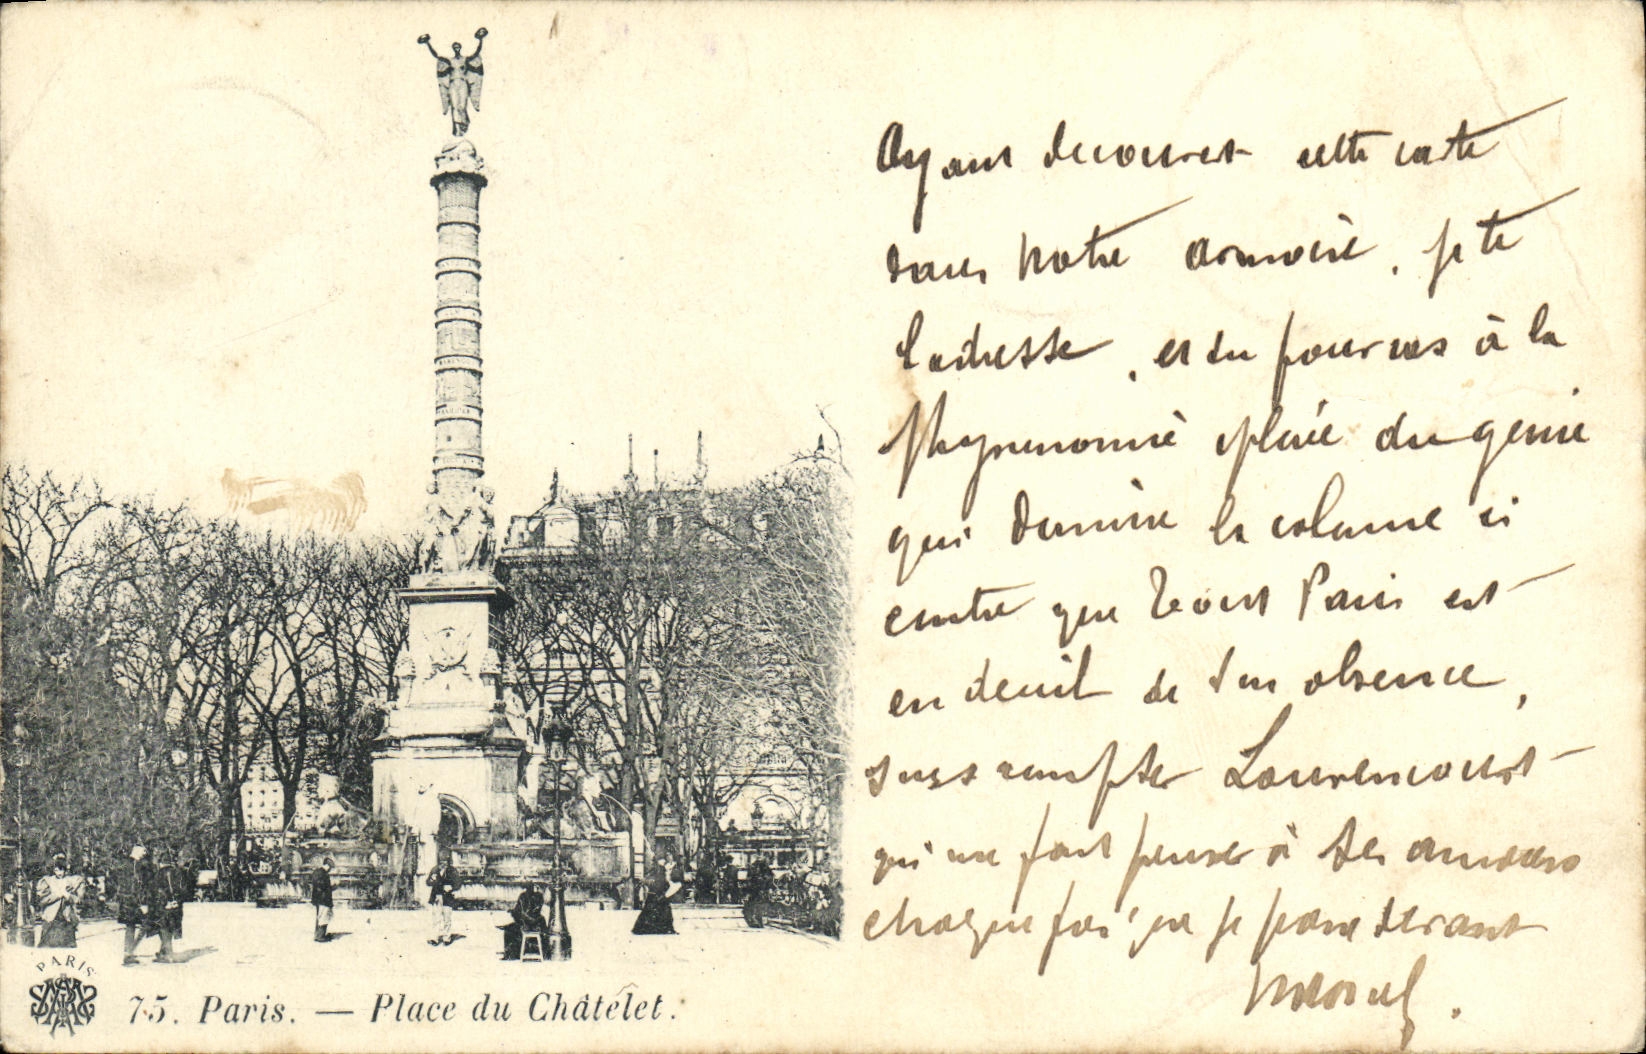 Ayant decouvert cette carte
dans notre armoire, je te
l'adresse, et tu pourras à la
physionomie pleine du genie
qui domine la colonne ci
contre que tout Paris est
en deuil de ton absence,
sans compter Lavrencourt
qui me fait penser à tes amours
chaque fois que je passe devant
Marcel.
PARIS
75. Paris. — Place du Châtelet.